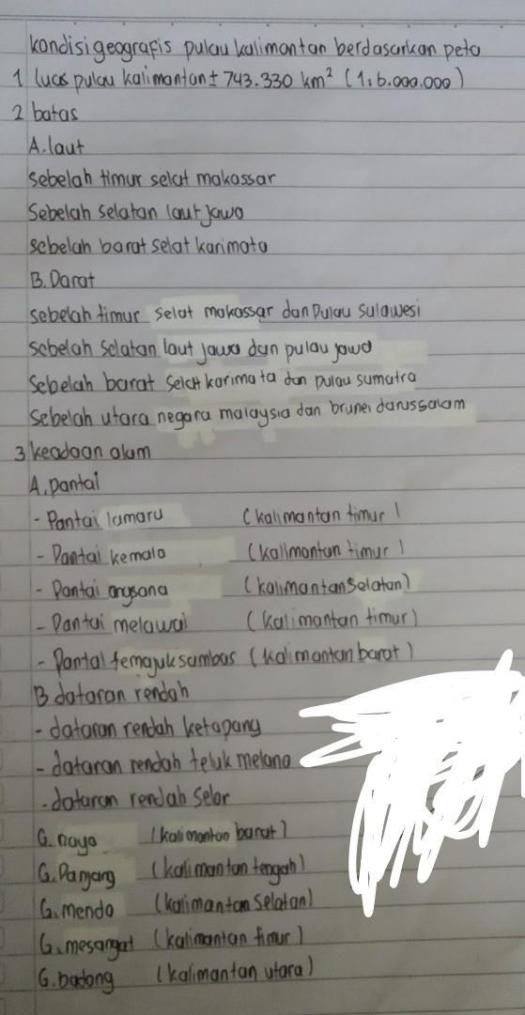 kondisi geografis pulau kalimantan berdasarkan peta
1 luas pulau kalimantan ± 743.330 km² (1:6.000.000)
2 batas
A. laut
sebelah timur selat makassar
Sebelah selatan laut jawa
sebelah barat selat karimata
B. Darat
sebelah timur selat makassar dan pulau sulawesi
sebelah selatan laut jawa dan pulau jawa
Sebelah barat selat karimata dan pulau sumatra
Sebelah utara negara malaysia dan brunei darussalam
3 keadaan alam
A. pantai
- Pantai lamaru (kalimantan timur)
- Pantai kemala (kalimantan timur)
- Pantai angsana (kalimantan Selatan)
- Pantai melawai (kalimantan timur)
- Pantai temajuk sambas (kalimantan barat)
B dataran rendah
- dataran rendah ketapang
- dataran rendah teluk melano
- dataran rendah selor
G. naya (kalimantan barat)
G. Panjang (kalimantan tengah)
G. mendo (kalimantan Selatan)
G. mesangat (kalimantan timur)
G. badang (kalimantan utara)